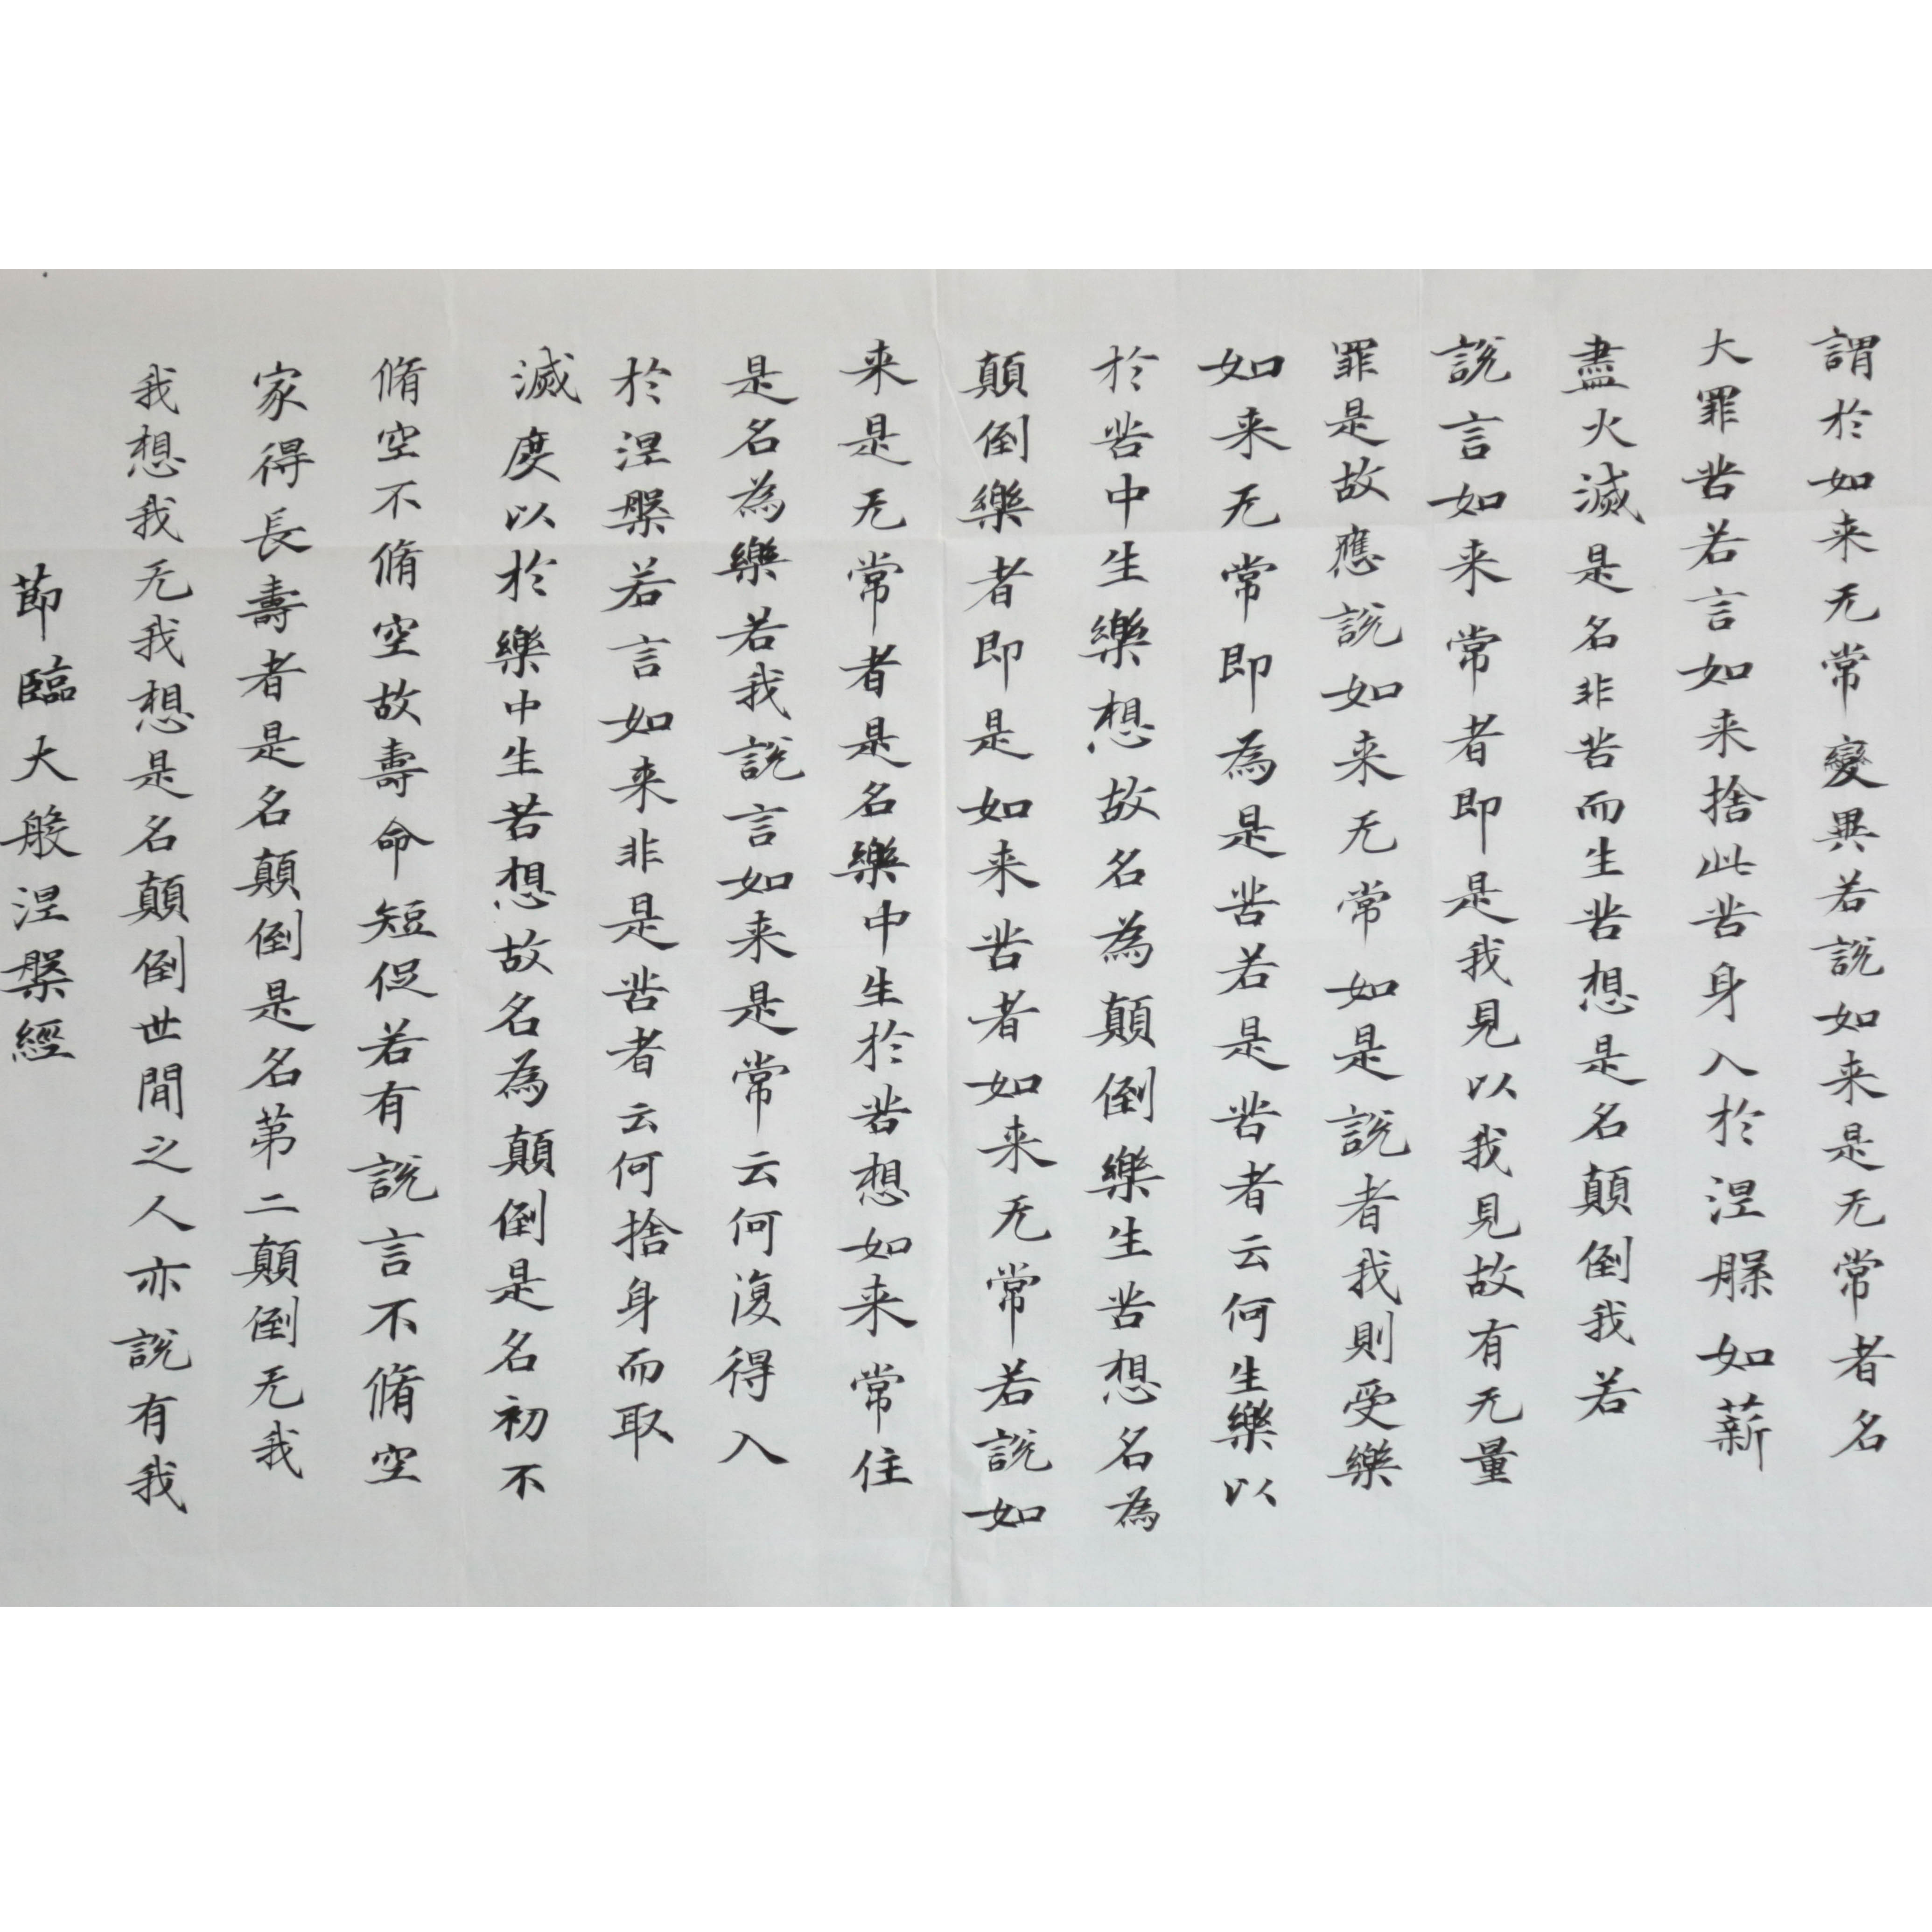 謂於如来无常變異若說如来是无常者名
大罪苦若言如来捨此苦身入於涅槃如薪
盡火滅是名非苦而生苦想是名顛倒我若
說言如来常者即是我見以我見故有无量
罪是故應說如来无常如是說者我則受樂
如来无常即為是苦若是苦者云何生樂以
於苦中生樂想故名為顛倒樂生苦想名為
顛倒樂者即是如来苦者如来无常若說如
来是无常者是名樂中生於苦想如来常住
是名為樂若我說言如来是常云何復得入
於涅槃若言如来非是苦者云何捨身而取
滅度以於樂中生苦想故名為顛倒是名初不
脩空不脩空故壽命短促若有說言不脩空
家得長壽者是名顛倒是名第二顛倒无我
我想我无我想是名顛倒世間之人亦說有我
節臨大般涅槃經